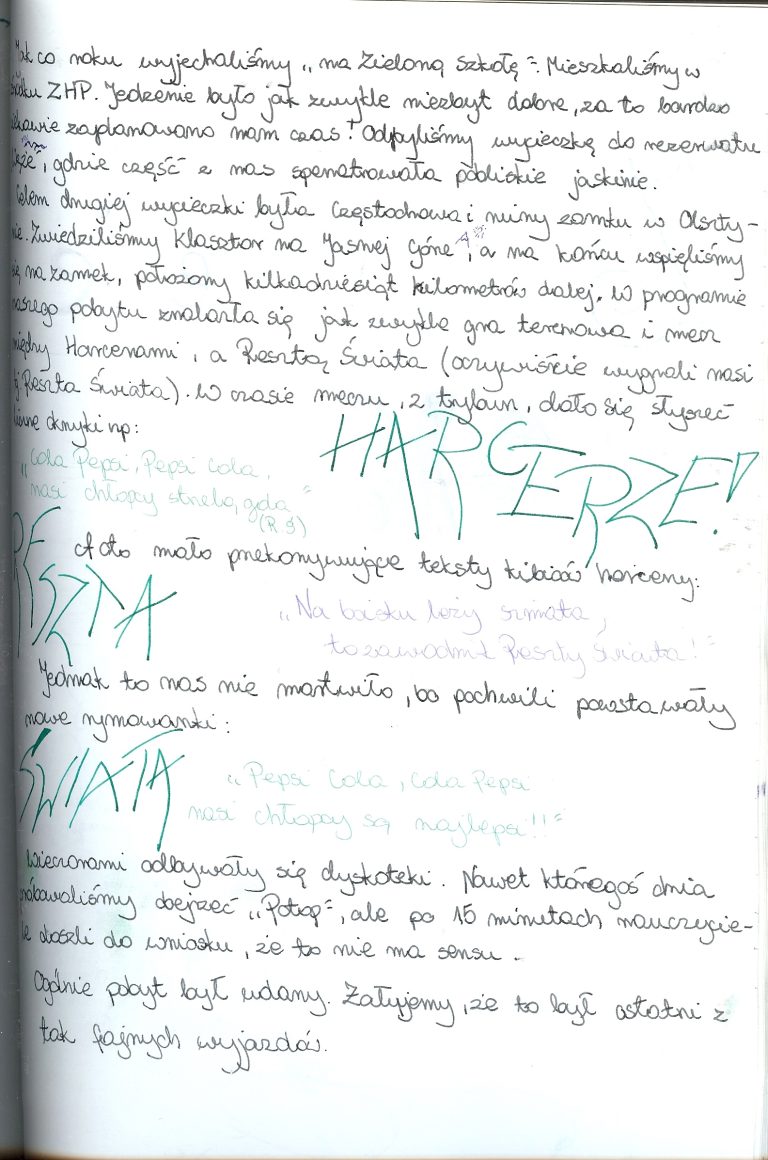 Jak co roku wyjechaliśmy „na Zieloną Szkołę”. Mieszkaliśmy w
ośrodku ZHP. Jedzenie było jak zwykle niezbyt dobre, za to bardzo
ciekawie zaplanowano nam czas! Odbyliśmy wycieczkę do rezerwatu
gdzie część z nas spenetrowała pobliskie jaskinie.
Celem drugiej wycieczki była Częstochowa i ruiny zamku w Olszty-
nie. Zwiedziliśmy Klasztor na Jasnej Górze, a na końcu wspięliśmy
się na zamek, położony kilkadziesiąt kilometrów dalej. W programie
naszego pobytu znalazła się jak zwykle gra terenowa i mecz
między Harcerzami, a Resztą Świata (oczywiście wygrali nasi
tj Reszta Świata). W czasie meczu, z trybun, dało się słyszeć
różne okrzyki np:
HARCERZE!
„Cola Pepsi, Pepsi Cola,
nasi chłopcy strzelą gola”
(R.Ś)
RESZTA
A oto mało przekonywujące teksty kibiców harcerzy:
„Na boisku leży szmata,
to zawodnik Reszty Świata!”
Jednak to nas nie martwiło, bo po chwili powstawały
nowe rymowanki:
ŚWIATA
„Pepsi Cola, Cola Pepsi
nasi chłopcy są najlepsi!!”
Wieczorami odbywały się dyskoteki. Nawet któregoś dnia
próbowaliśmy obejrzeć „Potop”, ale po 15 minutach nauczycie-
le doszli do wniosku, że to nie ma sensu.
Ogólnie pobyt był udany. Żałujemy, że to był ostatni z
tak fajnych wyjazdów.